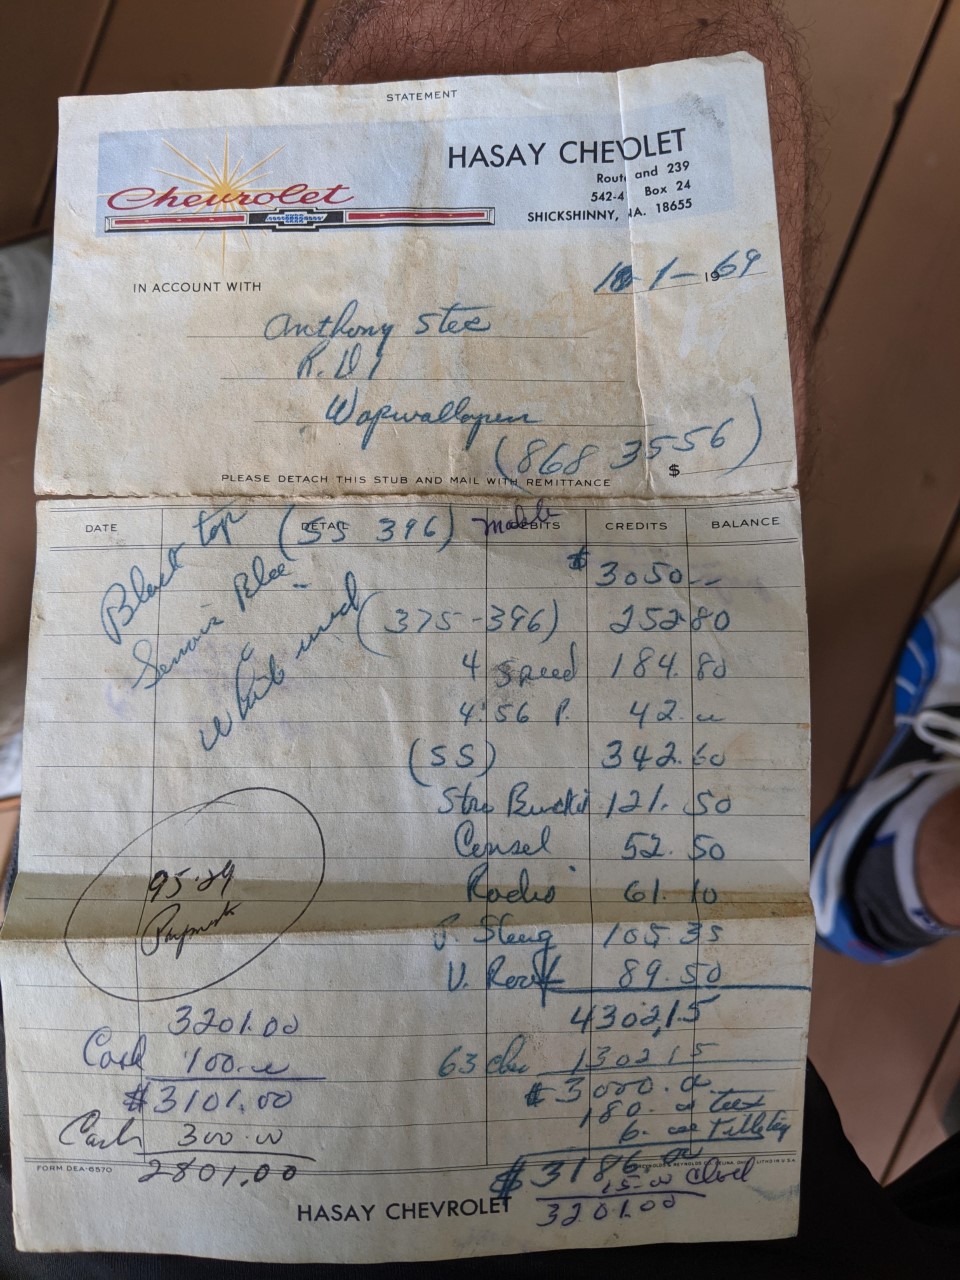 STATEMENT
Chevrolet
HASAY CHEVOLET
Rout and 239
542-4 Box 24
SHICKSHINNY, A. 18655
10-1-1969
IN ACCOUNT WITH
Anthony Stec
R.D 1
Wapwallopen
(868 3556)
$
PLEASE DETACH THIS STUB AND MAIL WITH REMITTANCE
DATE DETAIL DEBITS CREDITS BALANCE
Black top (SS 396) Malibu
$3050--
Blue
(375-396) 252 80
White
4 Speed 184.80
4:56 P. 42.
(SS) 342.60
Buckit 121.50
Consel 52.50
Radio 61.10
95.29
P. Steeng 105.35
V. Roof 89.50
3201.00
4302,15
Cash 100.
63 1302 15
$3101.00
$3000.
180. Tax
Cash 300.00
6.
2801.00
$3186.
15.00
3201.00
FORM DEA-6570
LITHO IN U.S.A.
HASAY CHEVROLET